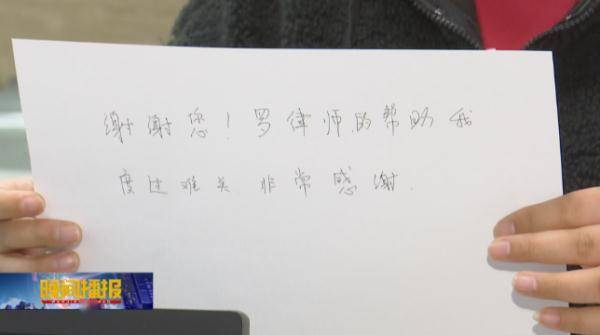 谢谢您！罗律师的帮助我
度过难关 非常感谢.